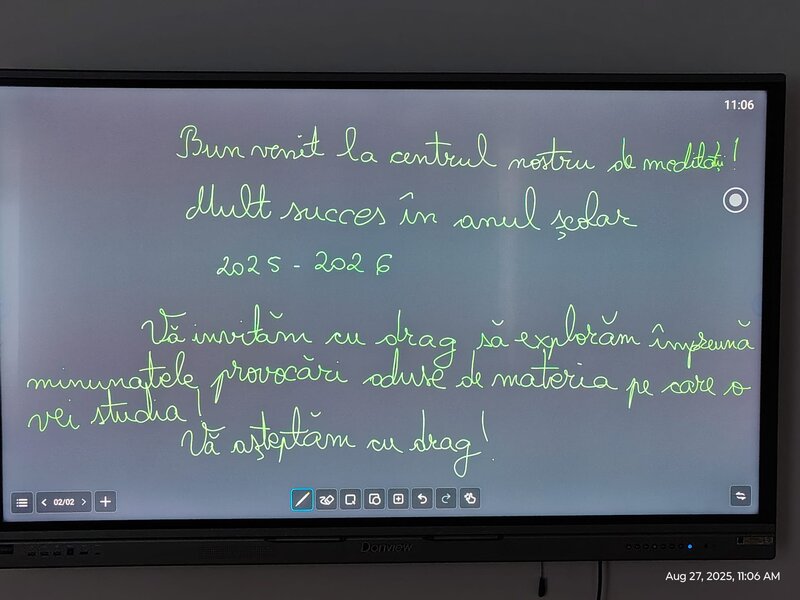 11:06
Bun venit la centrul nostru de meditații!
Mult succes în anul școlar
2025 - 2026
Vă invităm cu drag să explorăm împreună
minunatele provocări aduse de materia pe care o
vei studia!
Vă așteptăm cu drag!
02/02
Donview
Aug 27, 2025, 11:06 AM